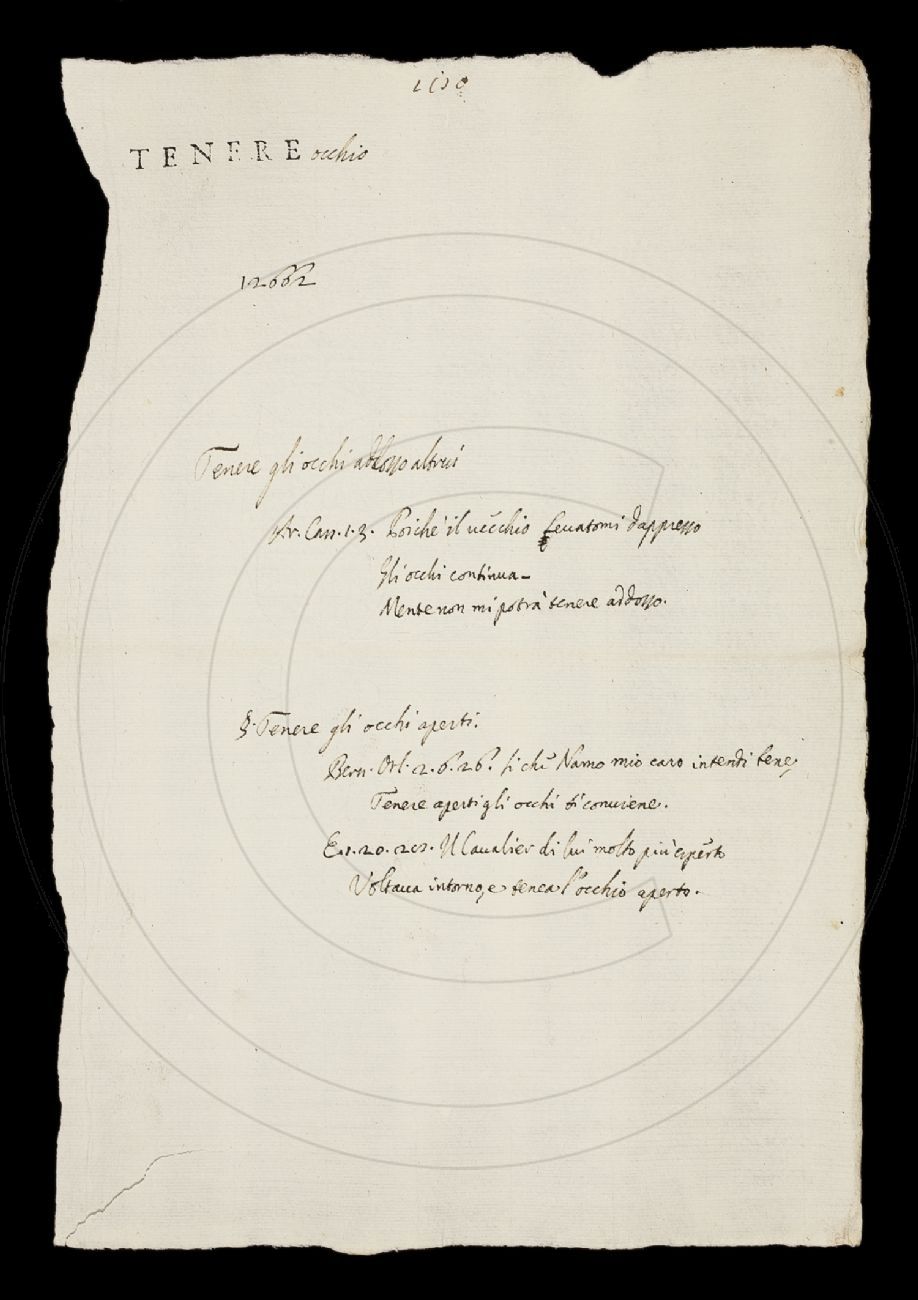 TENERE occhio
12662
Tenere gli occhi addosso altrui
Ar. Cass. 1. 3. Poiche il vecchio levatomi dappresso
Gli occhi continua-
Mente non mi potrà tenere addosso.
§. Tenere gli occhi aperti.
Bern. Orl. 2. 6. 26. sichè Namo mio caro intendi bene,
Tenere aperti gli occhi si conviene.
E. 1. 20. Il Cavalier di lui molto più esperto
Voltava intorno, e tenea l'occhio aperto.